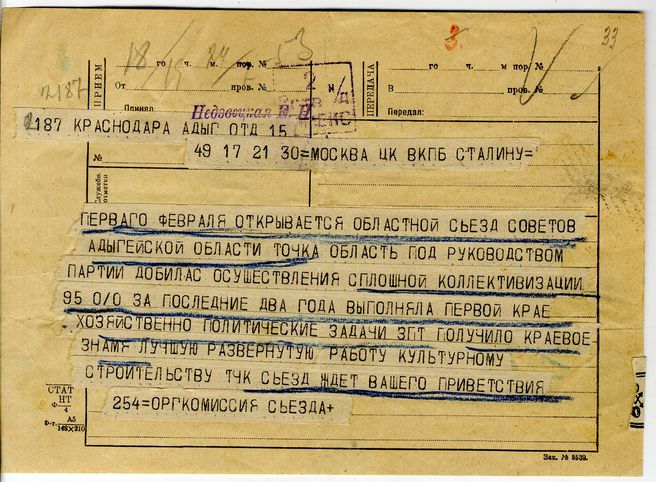 18 24 53
3. 33
ПРИЕМ
го ч. м. пор. №
От пров. №
Принял
2187
Недзвецкая
ПЕРЕДАЧА
го ч. м пор. №
В пров. №
Передал:
2187 КРАСНОДАРА АДЫГ ОТД 15
49 17 21 30=МОСКВА ЦК ВКПБ СТАЛИНУ=
№
Служебн. отметки
ПЕРВАГО ФЕВРАЛЯ ОТКРЫВАЕТСЯ ОБЛАСТНОЙ СЬЕЗД СОВЕТОВ
АДЫГЕЙСКОЙ ОБЛАСТИ ТОЧКА ОБЛАСТЬ ПОД РУКОВОДСТВОМ
ПАРТИИ ДОБИЛАС ОСУШЕСТВЛЕНИЯ СПЛОШНОЙ КОЛЛЕКТИВИЗАЦИИ
95 О/О ЗА ПОСЛЕДНИЕ ДВА ГОДА ВЫПОЛНЯЛА ПЕРВОЙ КРАЕ
ХОЗЯЙСТВЕННО ПОЛИТИЧЕСКИЕ ЗАДАЧИ ЗПТ ПОЛУЧИЛО КРАЕВОЕ
ЗНАМЯ ЛУЧШУЮ РАЗВЕРНУТУЮ РАБОТУ КУЛЬТУРНОМУ
СТРОИТЕЛЬСТВУ ТЧК СЬЕЗД ЖДЕТ ВАШЕГО ПРИВЕТСТВИЯ
254=ОРГКОМИССИЯ СЬЕЗДА+
СТАТ
НТ
Ф. 4
А5
Ф-т. 148×210
Зак. № 5539.